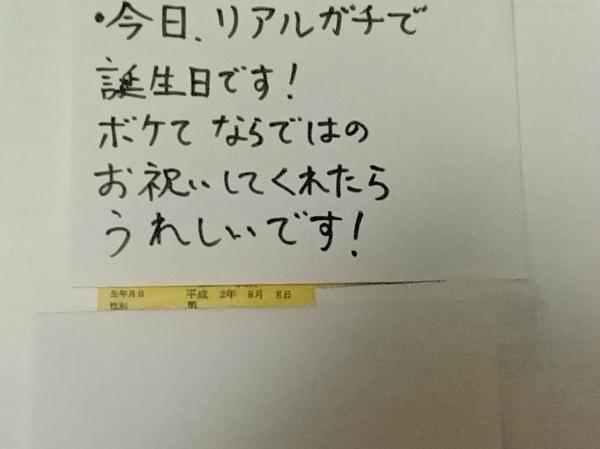 ・今日、リアルガチで
誕生日です!
ボケて ならではの
お祝いしてくれたら
うれしいです!
生年月日 平成 2年 8月 8日
性別 男